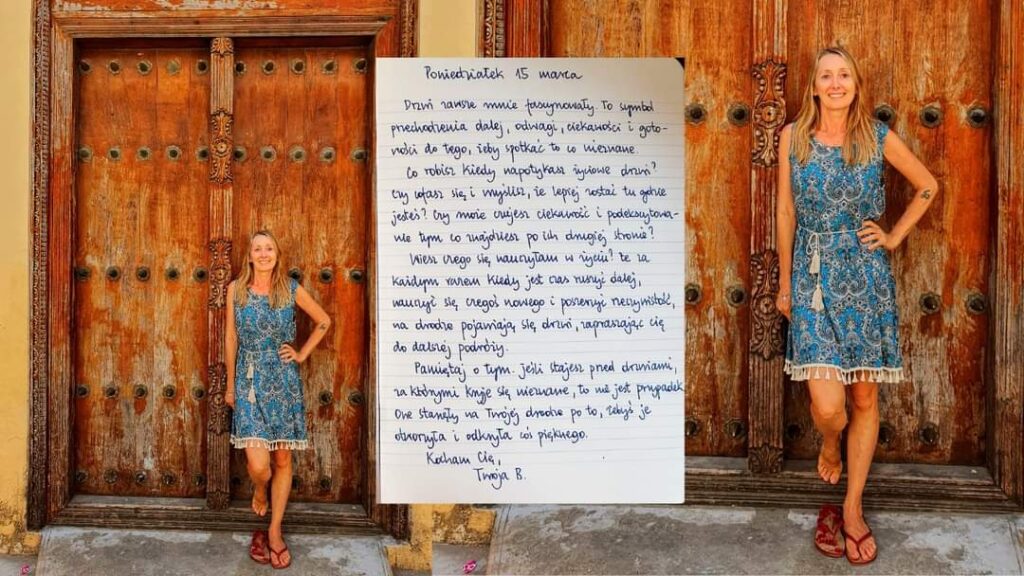 Poniedziałek 15 marca
Drzwi zawsze mnie fascynowały. To symbol
przechodzenia dalej, odwagi, ciekawości i goto-
wości do tego, żeby spotkać to co nieznane.
Co robisz kiedy napotykasz życiowe drzwi?
Czy cofasz się i myślisz, że lepiej zostać tu gdzie
jesteś? Czy może czujesz ciekawość i podekscytowa-
nie tym co znajdziesz po ich drugiej stronie?
Wiesz czego się nauczyłam w życiu? że za
każdym razem kiedy jest czas ruszyć dalej,
nauczyć się czegoś nowego i poszerzyć rzeczywistość,
na drodze pojawiają się drzwi, zapraszając cię
do dalszej podróży.
Pamiętaj o tym. jeśli stajesz przed drzwiami,
za którymi kryje się nieznane, to nie jest przypadek
One stanęły na Twojej drodze po to, żebyś je
otworzyła i odkryła coś pięknego.
Kocham Cię,
Twoja B.